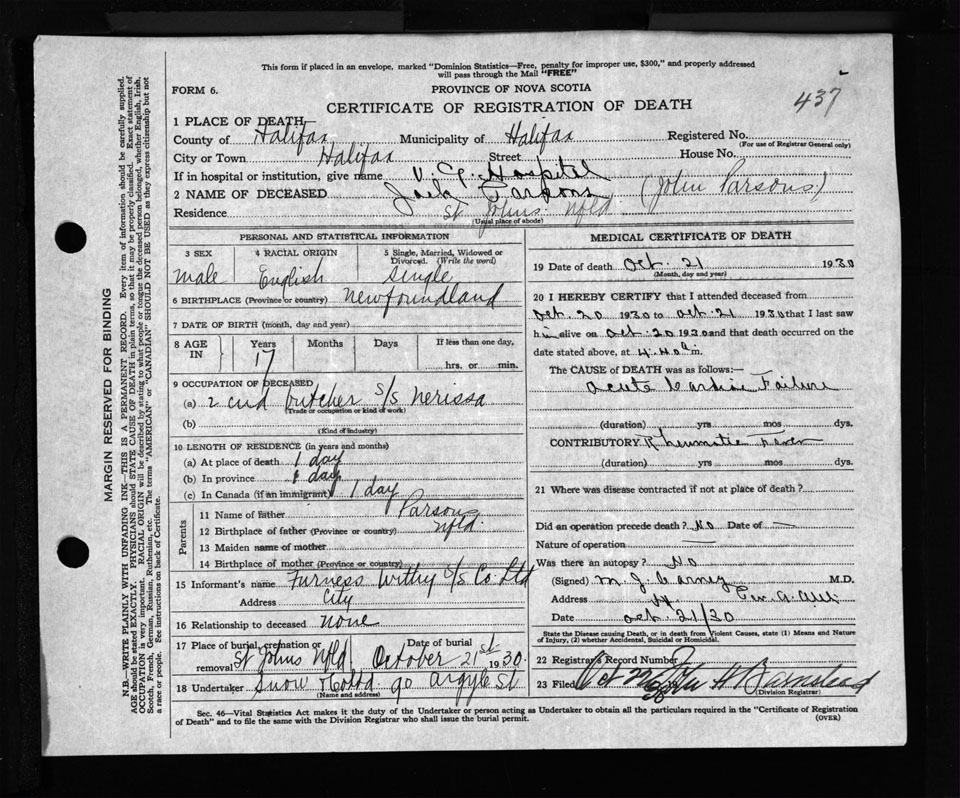 This form if placed in an envelope, marked "Dominion Statistics—Free, penalty for improper use, $300," and properly addressed
will pass through the Mail "FREE"
FORM 6.
PROVINCE OF NOVA SCOTIA
437
CERTIFICATE OF REGISTRATION OF DEATH
1 PLACE OF DEATH
County of Halifax Municipality of Halifax Registered No.
(For use of Registrar General only)
City or Town Halifax Street House No.
If in hospital or institution, give name V. G. Hospital
2 NAME OF DECEASED Jack Parsons (John Parsons)
Residence St Johns Nfld
(Usual place of abode)
PERSONAL AND STATISTICAL INFORMATION
3 SEX 4 RACIAL ORIGIN 5 Single, Married, Widowed or
Divorced. (Write the word)
male English single
6 BIRTHPLACE (Province or country) Newfoundland
7 DATE OF BIRTH (month, day and year)
8 AGE IN Years Months Days If less than one day,
17 hrs. or min.
9 OCCUPATION OF DECEASED
(a) 2cnd butcher S/S Nerissa
(Trade or occupation or kind of work)
(b)
(Kind of industry)
10 LENGTH OF RESIDENCE (in years and months)
(a) At place of death 1 day
(b) In province 1 day
(c) In Canada (if an immigrant) 1 day
Parents
11 Name of father Parsons
12 Birthplace of father (Province or country) Nfld.
13 Maiden name of mother
14 Birthplace of mother (Province or country)
15 Informant's name Furness Withy S/S Co Ltd
Address City
16 Relationship to deceased none
17 Place of burial, cremation or Date of burial
removal St Johns Nfld. October 21st 1930.
18 Undertaker Snow & Co Ltd. 90 Argyle St
(Name and address)
MEDICAL CERTIFICATE OF DEATH
19 Date of death Oct. 21 1930
(Month, day and year)
20 I HEREBY CERTIFY that I attended deceased from
Oct. 20 1930 to Oct. 21 1930 that I last saw
him alive on Oct. 20 1930 and that death occurred on
date stated above, at 4.40 m.
The CAUSE of DEATH was as follows:—
Acute Cardiac Failure
(duration) yrs mos dys.
CONTRIBUTORY Rheumatic Fever
(duration) yrs mos dys.
21 Where was disease contracted if not at place of death?
Did an operation precede death? No Date of —
Nature of operation —
Was there an autopsy? No
(Signed) M. J. Carney M.D.
Address
Date Oct. 21/30
State the Disease causing Death, or in death from Violent Causes, state (1) Means and Nature
of Injury, (2) whether Accidental, Suicidal or Homicidal.
22 Registrar's Record Number
23 Filed Oct John H Barnstead
(Division Registrar)
Sec. 46—Vital Statistics Act makes it the duty of the Undertaker or person acting as Undertaker to obtain all the particulars required in the "Certificate of Registration
of Death" and to file the same with the Division Registrar who shall issue the burial permit.
(OVER)
MARGIN RESERVED FOR BINDING
N.B.—WRITE PLAINLY WITH UNFADING INK—THIS IS A PERMANENT RECORD. Every item of information should be carefully supplied.
AGE should be stated EXACTLY. PHYSICIANS should STATE CAUSE OF DEATH in plain terms, so that it may be properly classified. Exact statement of
OCCUPATION is very important. RACIAL ORIGIN will be described by stating to what people or race the deceased person belonged, whether English, Irish,
Scotch, French, German, Russian, Ruthenian, etc. The terms "AMERICAN" or "CANADIAN" SHOULD NOT BE USED as they express citizenship but not
a race or people. See instructions on back of Certificate.